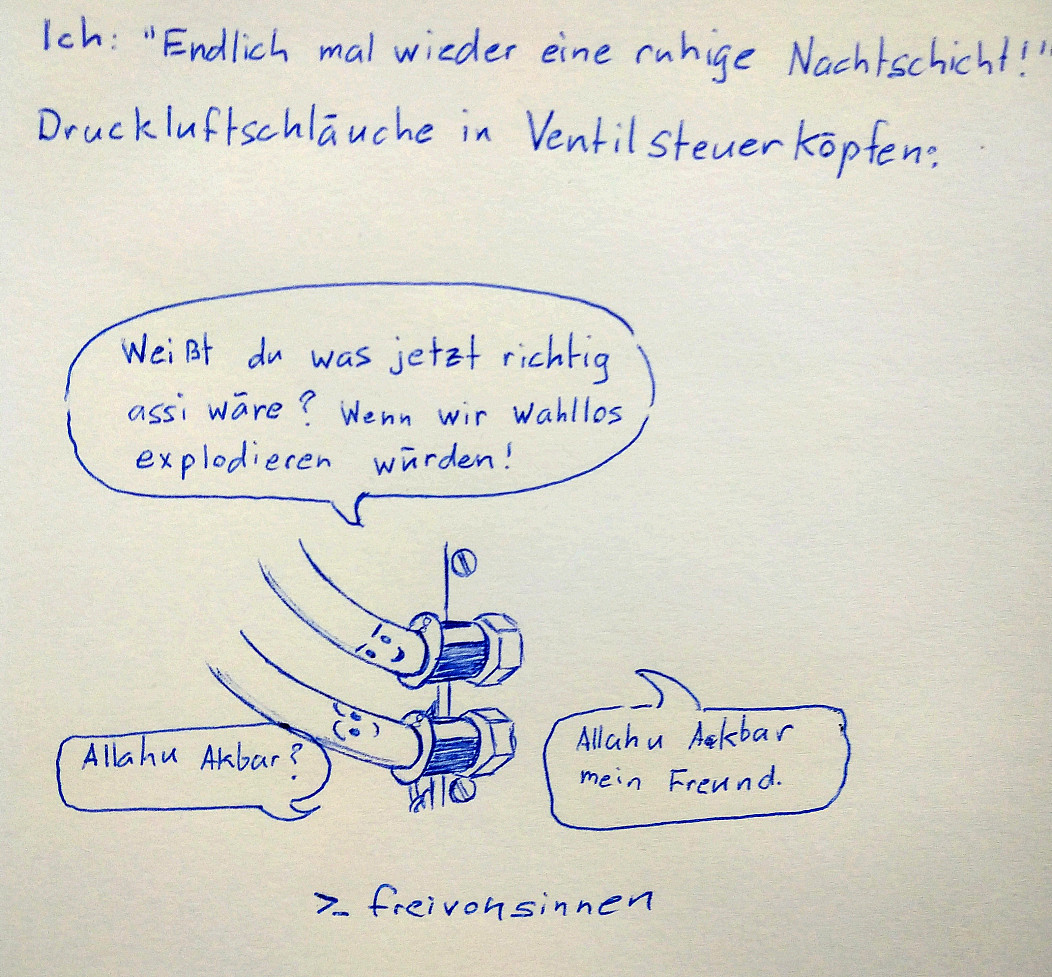 Ich: "Endlich mal wieder eine ruhige Nachtschicht!"
Druckluftschläuche in Ventilsteuerköpfen:
Weißt du was jetzt richtig
assi wäre? Wenn wir wahllos
explodieren würden!
Allahu Akbar?
Allahu Ackbar
mein Freund.
>_ freivonsinnen